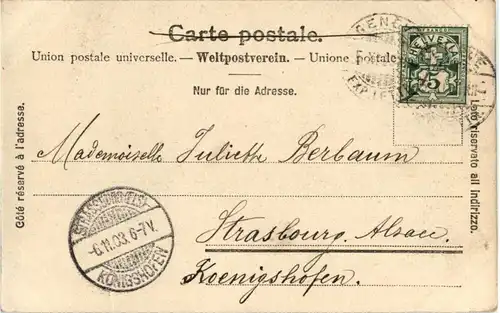 Carte postale.
Union postale universelle. — Weltpostverein. — Unione postale
Nur für die Adresse.
Côté réservé à l'adresse.
Lato riservato all indirizzo.
FRANCO
HELVETIA
5
GENÈVE
EXP. LETT.
Mademoiselle Juliette Berbaum
Strasbourg. Alsace.
Koenigshofen.
STRASSBURG (ELS)
-6.11.03. 6-7 V.
KÖNIGSHOFEN